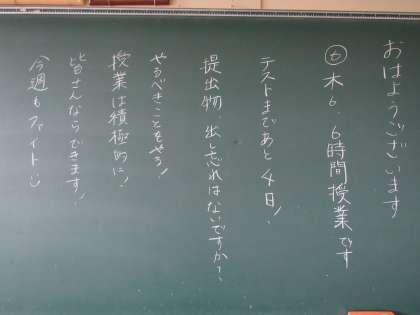 おはようございます
㊅ 木6、6時間授業です
テストまであと4日!
提出物、出し忘れはないですか?
やるべきことをやろう!
授業は積極的に!
皆さんならできます!
今週もファイト